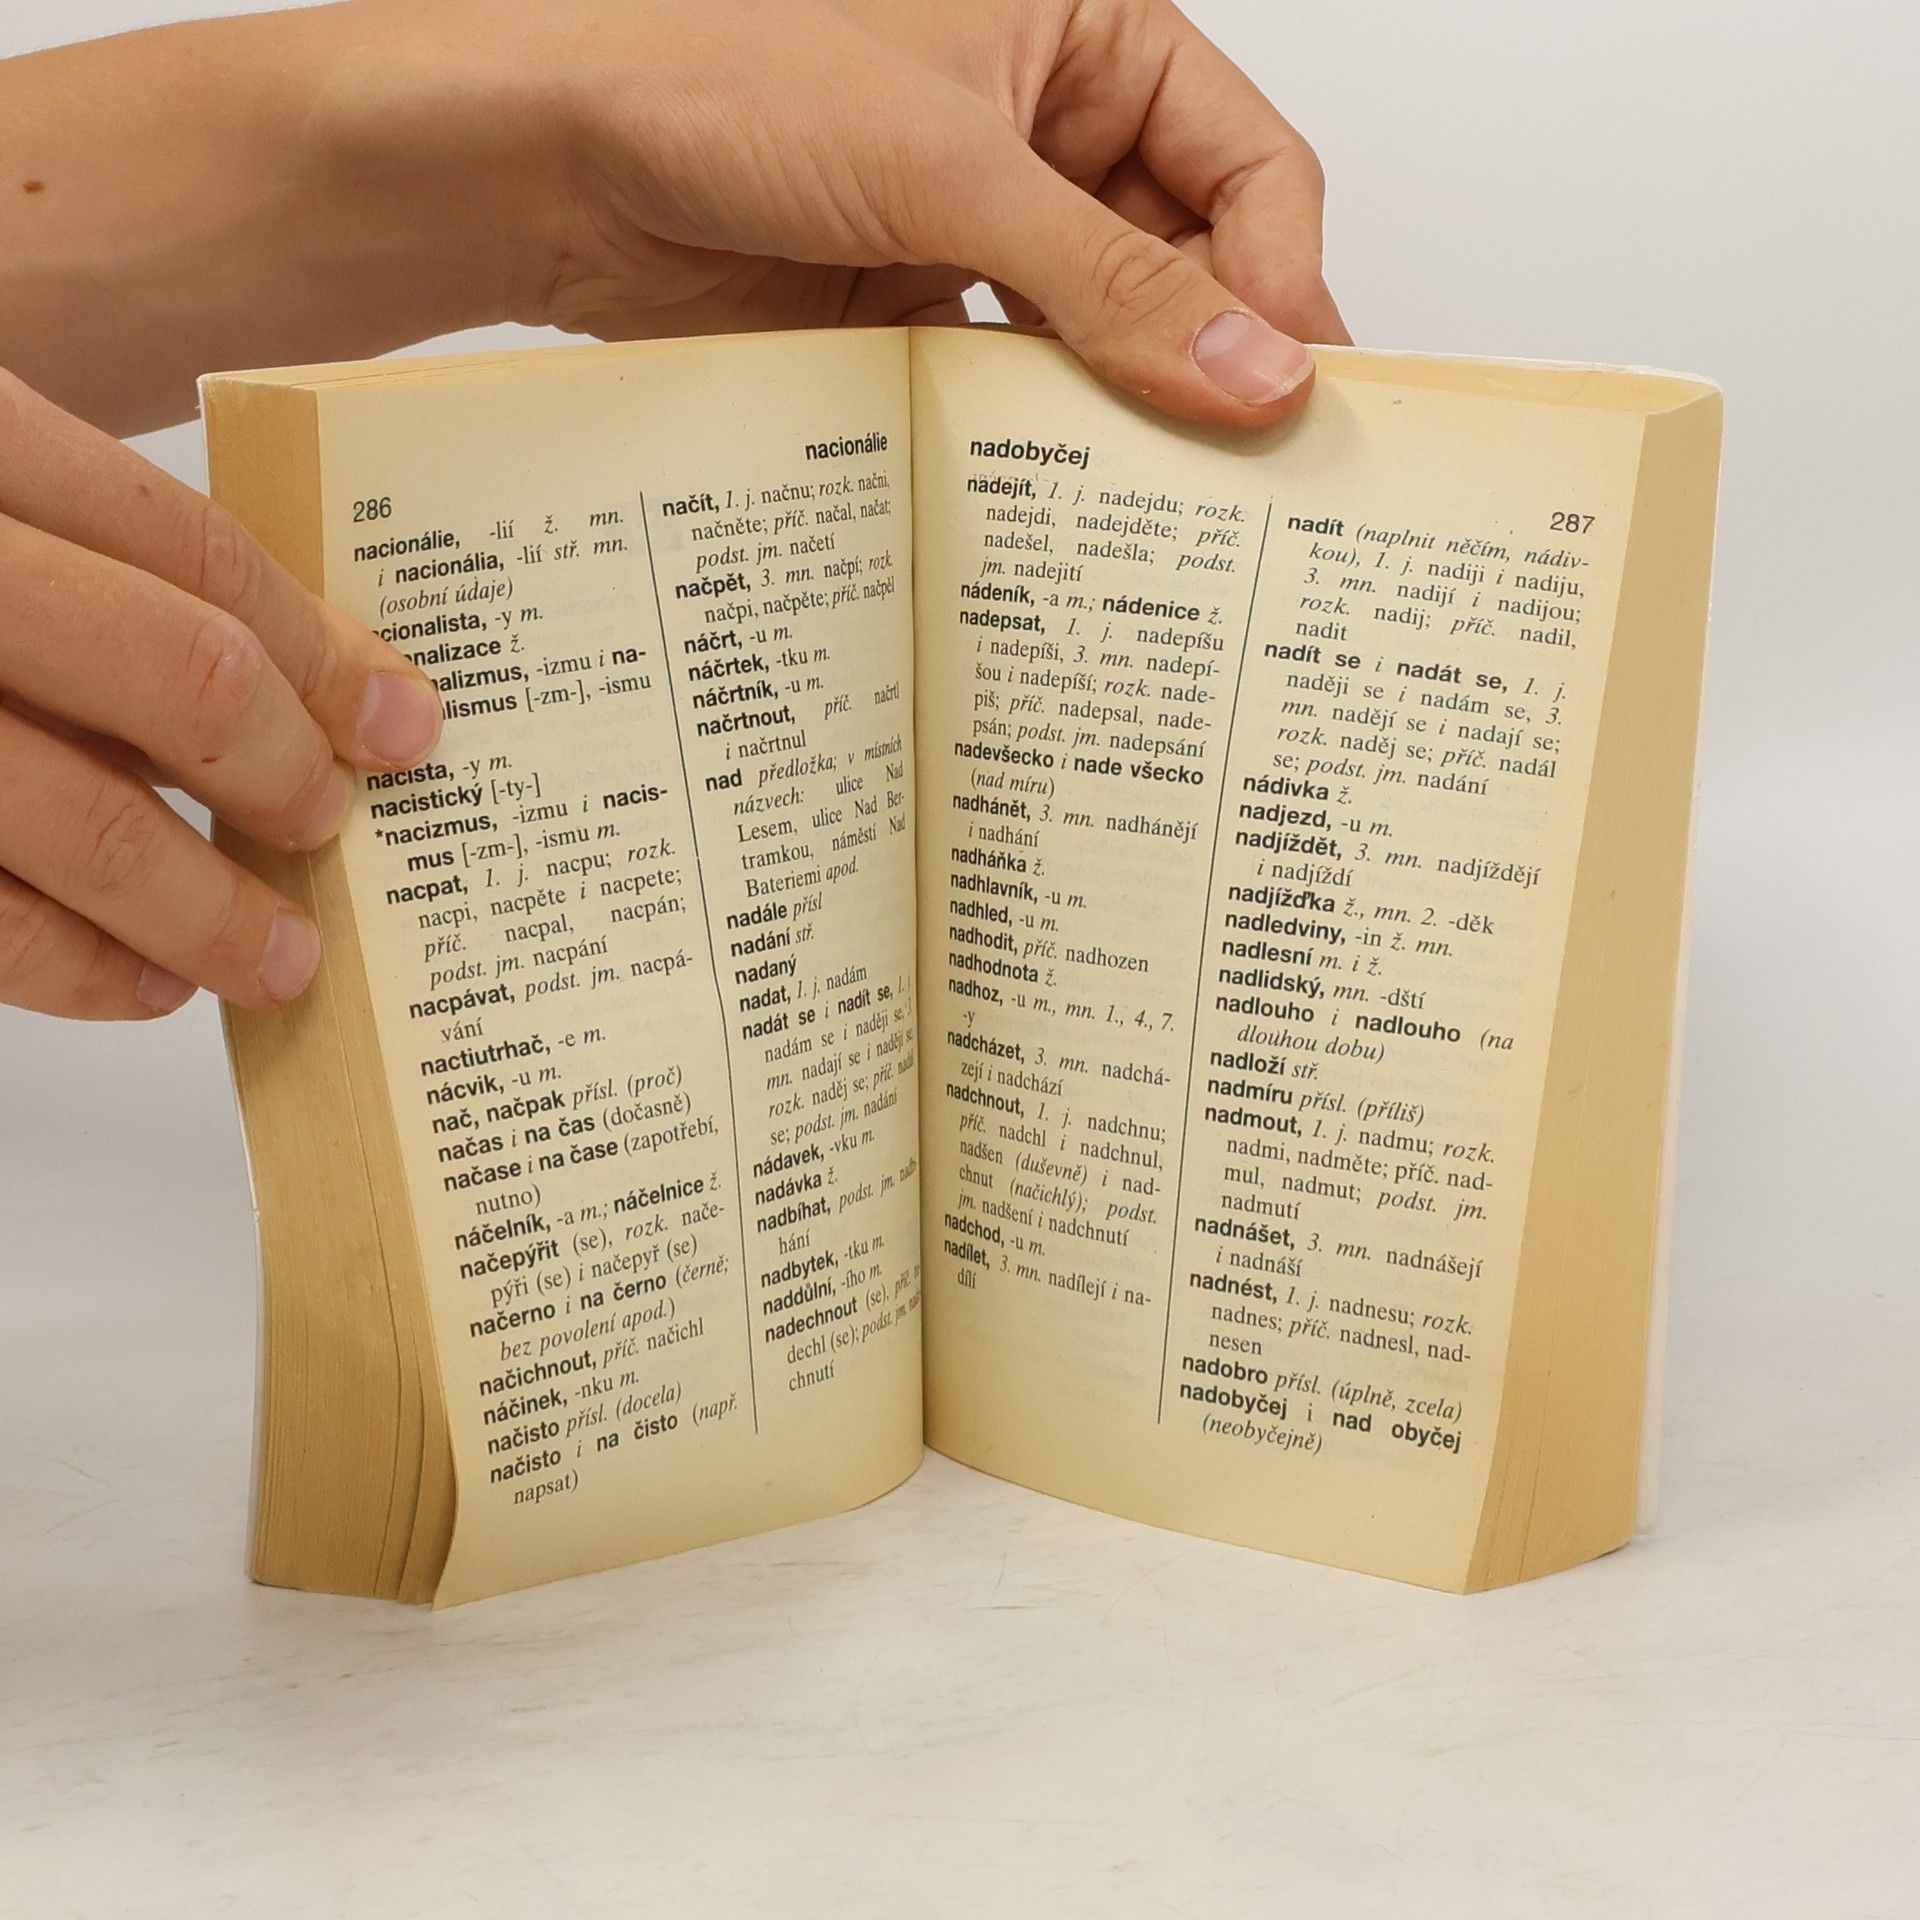 286
nacionálie
nacionálie, -lií ž. mn.
i nacionália, -lií stř. mn.
(osobní údaje)
-y m.
ž.
-izmu i na-
[-zm-], -ismu
nacista, -y m.
nacistický [-ty-]
*nacizmus, -izmu i nacis-
mus [-zm-], -ismu m.
nacpat, 1. j. nacpu; rozk.
nacpi, nacpěte i nacpete;
příč. nacpal, nacpán;
podst. jm. nacpání
nacpávat, podst. jm. nacpá-
vání
nactiutrhač, -e m.
nácvik, -u m.
nač, načpak přísl. (proč)
načas i na čas (dočasně)
načase i na čase (zapotřebí,
nutno)
náčelník, -a m.; náčelnice ž.
načepýřit (se), rozk. nače-
pýři (se) i načepyř (se)
načerno i na černo (černě;
bez povolení apod.)
načichnout, příč. načichl
náčinek, -nku m.
načisto přísl. (docela)
načisto i na čisto (např.
napsat)
načít, 1. j. načnu; rozk. načni,
načněte; příč. načal, načat;
podst. jm. načetí
načpět, 3. mn. načpí; rozk.
načpi, načpěte; příč. načpěl
náčrt, -u m.
náčrtek, -tku m.
náčrtník, -u m.
načrtnout, příč. načrtl
i načrtnul
nad předložka; v místních
názvech: ulice Nad
Lesem, ulice Nad Ber-
tramkou, náměstí Nad
Bateriemi apod.
nadále přísl
nadání stř.
nadaný
nadat, 1. j. nadám
nadát se i nadít se, 1. j
nadám se i naději se, 3
mn. nadají se i nadějí se,
rozk. naděj se; příč. nadál
se; podst. jm. nadání
nádavek, -vku m.
nadávka ž.
nadbíhat, podst. jm. nadbí-
hání
nadbytek, -tku m.
naddůlní, -ího m.
nadechnout (se), příč.
dechl (se); podst. jm.
chnutí
nadobyčej
287
nadejít, 1. j. nadejdu; rozk.
nadejdi, nadejděte; příč.
nadešel, nadešla; podst.
jm. nadejití
nádeník, -a m.; nádenice ž.
nadepsat, 1. j. nadepíšu
i nadepíši, 3. mn. nadepí-
šou i nadepíší; rozk. nade-
piš; příč. nadepsal, nade-
psán; podst. jm. nadepsání
nadevšecko i nade všecko
(nad míru)
nadhánět, 3. mn. nadhánějí
i nadhání
nadháňka ž.
nadhlavník, -u m.
nadhled, -u m.
nadhodit, příč. nadhozen
nadhodnota ž.
nadhoz, -u m., mn. 1., 4., 7.
-y
nadcházet, 3. mn. nadchá-
zejí i nadchází
nadchnout, 1. j. nadchnu;
příč. nadchl i nadchnul,
nadšen (duševně) i nad-
chnut (načichlý); podst.
jm. nadšení i nadchnutí
nadchod, -u m.
nadílet, 3. mn. nadílejí i na-
dílí
nadít (naplnit něčím, nádiv-
kou), 1. j. nadiji i nadiju,
3. mn. nadijí i nadijou;
rozk. nadij; příč. nadil,
nadit
nadít se i nadát se, 1. j.
naději se i nadám se, 3.
mn. nadějí se i nadají se;
rozk. naděj se; příč. nadál
se; podst. jm. nadání
nádivka ž.
nadjezd, -u m.
nadjíždět, 3. mn. nadjíždějí
i nadjíždí
nadjížďka ž., mn. 2. -děk
nadledviny, -in ž. mn.
nadlesní m. i ž.
nadlidský, mn. -dští
nadlouho i nadlouho (na
dlouhou dobu)
nadloží stř.
nadmíru přísl. (příliš)
nadmout, 1. j. nadmu; rozk.
nadmi, nadměte; příč. nad-
mul, nadmut; podst. jm.
nadmutí
nadnášet, 3. mn. nadnášejí
i nadnáší
nadnést, 1. j. nadnesu; rozk.
nadnes; příč. nadnesl, nad-
nesen
nadobro přísl. (úplně, zcela)
nadobyčej i nad obyčej
(neobyčejně)